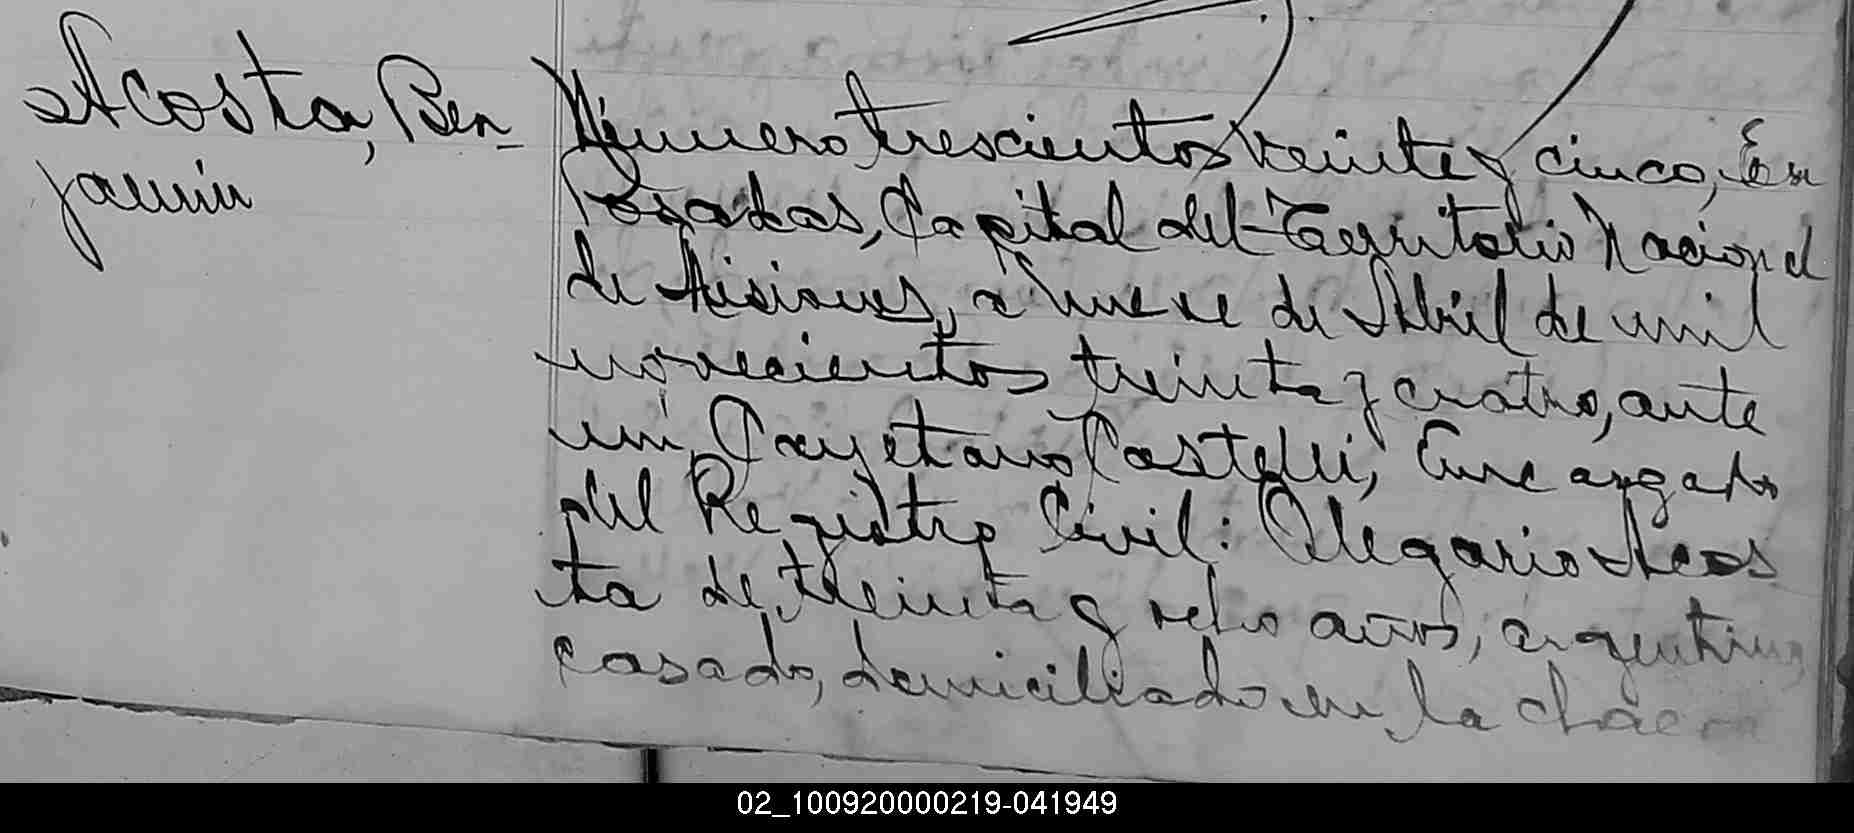 Acosta, Ben-
jamin
Número trescientos veinte y cinco, En
Posadas, Capital del Territorio Nacional
de Misiones, a nueve de Abril de mil
novecientos treinta y cuatro, ante
mi, Cayetano Castelli, Encargado
del Registro Civil: Olegario Acos
ta de treinta y ocho años, argentino
casado, domiciliado en la chacra
02_100920000219-041949